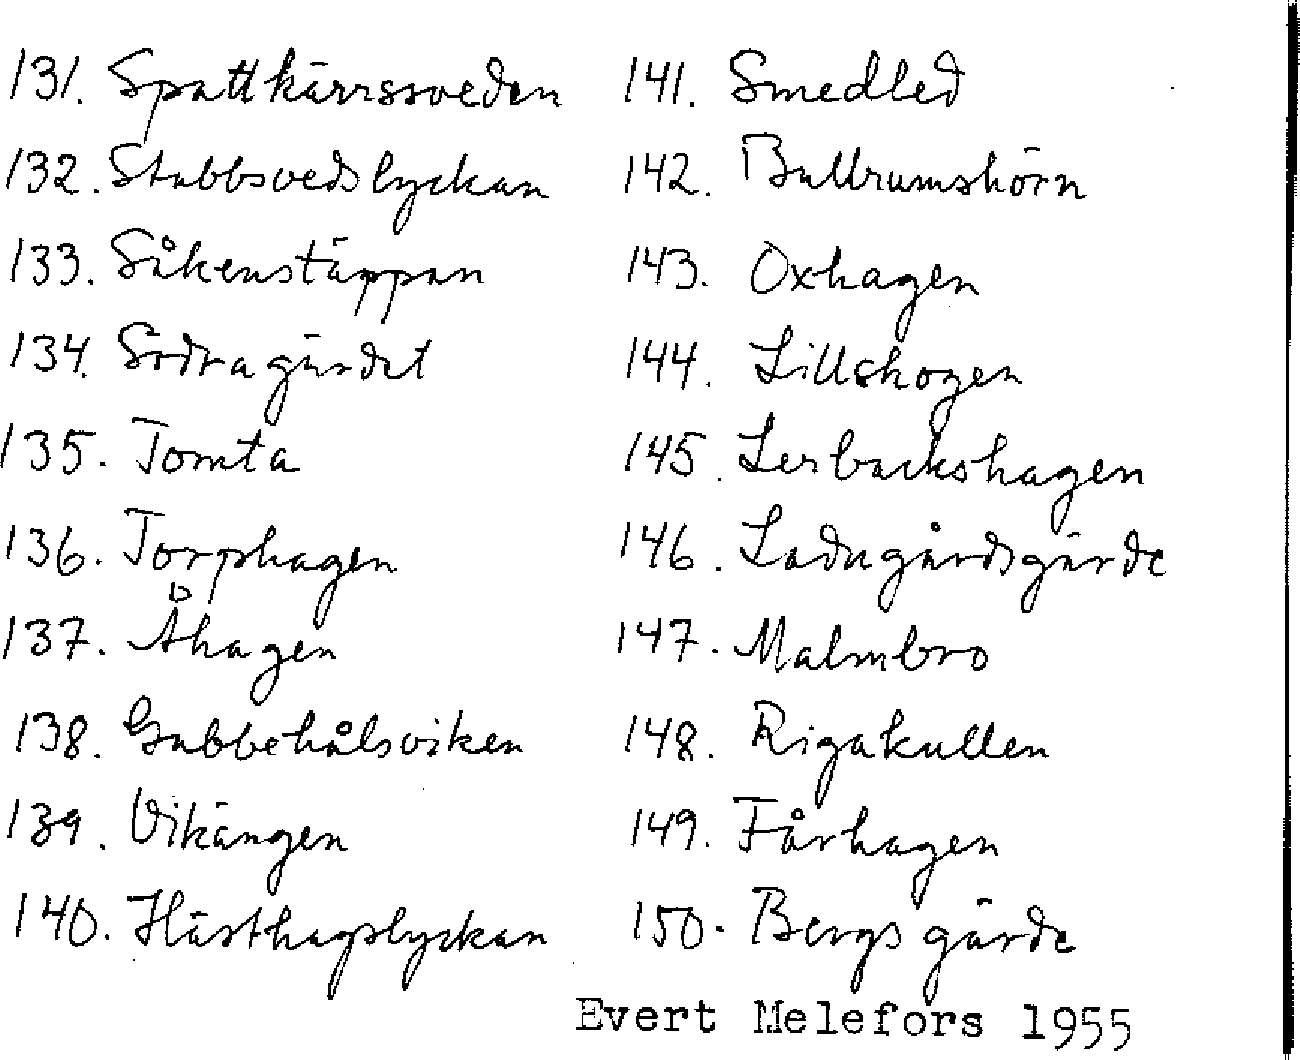 131. Spattkärrssveden
132. Stubbsvedslyckan
133. Såkenstäppan
134. Södra gärdet
135. Tomta
136. Torphagen
137. Åhagen
138. Gubbehålsviken
139. Vikängen
140. Hästhagslyckan
141. Smedled
142. Bullrumshörn
143. Oxhagen
144. Lillskogen
145. Lerbackshagen
146. Ladugårdsgärde
147. Malmbro
148. Rigakullen
149. Fårhagen
150. Bergsgärde
Evert Melefors 1955